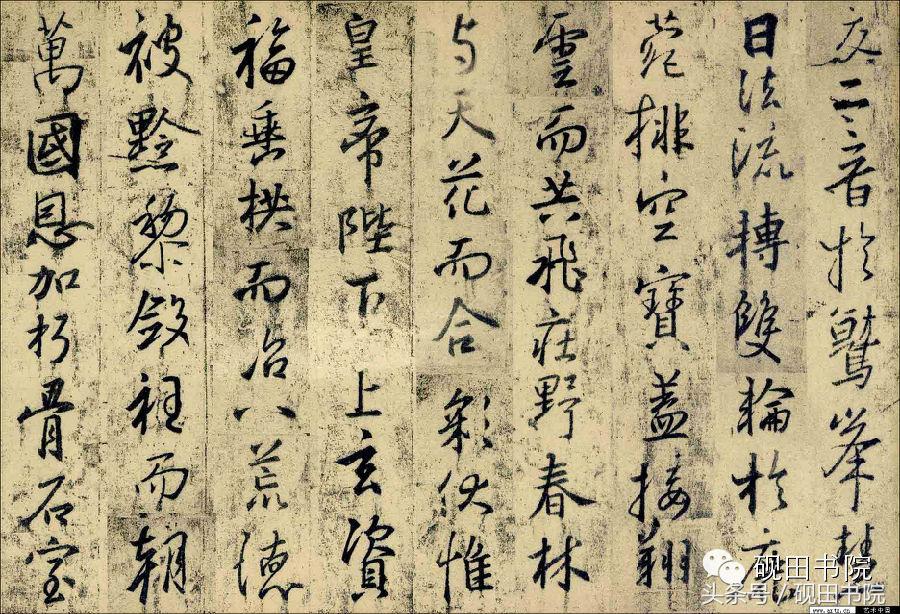 交二音於鷲峯慧
日法流轉雙輪於鹿
菀排空寶蓋接翔
雲而共飛莊野春林
与天花而合彩伏惟
皇帝陛下上玄資
福垂拱而治八荒德
被黔黎斂衽而朝
萬國恩加朽骨石室
砚田书院
头条号/砚田书院
www.artx.cn 艺术中国